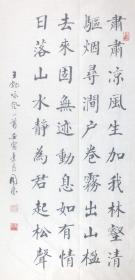 肅肅凉風生加我林壑清
驅烟尋澗户卷霧出山楹
去來固無迹動息如有情
日落山水靜為君起松聲
王勃詠風